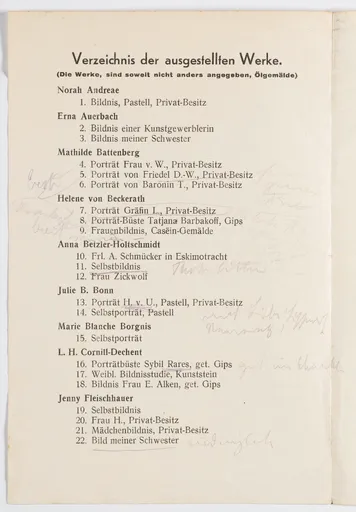 Verzeichnis der ausgestellten Werke.
(Die Werke, sind soweit nicht anders angegeben, Ölgemälde)
Norah Andreae
1. Bildnis, Pastell, Privat-Besitz
Erna Auerbach
2. Bildnis einer Kunstgewerblerin
3. Bildnis meiner Schwester
Mathilde Battenberg
4. Porträt Frau v. W., Privat-Besitz
5. Porträt von Friedel D.-W., Privat-Besitz
6. Porträt von Baronin T., Privat-Besitz
Helene von Beckerath
7. Porträt Gräfin L., Privat-Besitz
8. Porträt-Büste Tatjana Barbakoff, Gips
9. Frauenbildnis, Casëin-Gemälde
Anna Beizler-Holtschmidt
10. Frl. A. Schmücker in Eskimotracht
11. Selbstbildnis
12. Frau Zickwolf
Julie B. Bonn
13. Porträt H. v. U., Pastell, Privat-Besitz
14. Selbstporträt, Pastell
Marie Blanche Borgnis
15. Selbstporträt
L. H. Cornill-Dechent
16. Porträtbüste Sybil Rares, get. Gips
17. Weibl. Bildnisstudie, Kunststein
18. Bildnis Frau E. Alken, get. Gips
Jenny Fleischhauer
19. Selbstbildnis
20. Frau H., Privat-Besitz
21. Mädchenbildnis, Privat-Besitz
22. Bild meiner Schwester